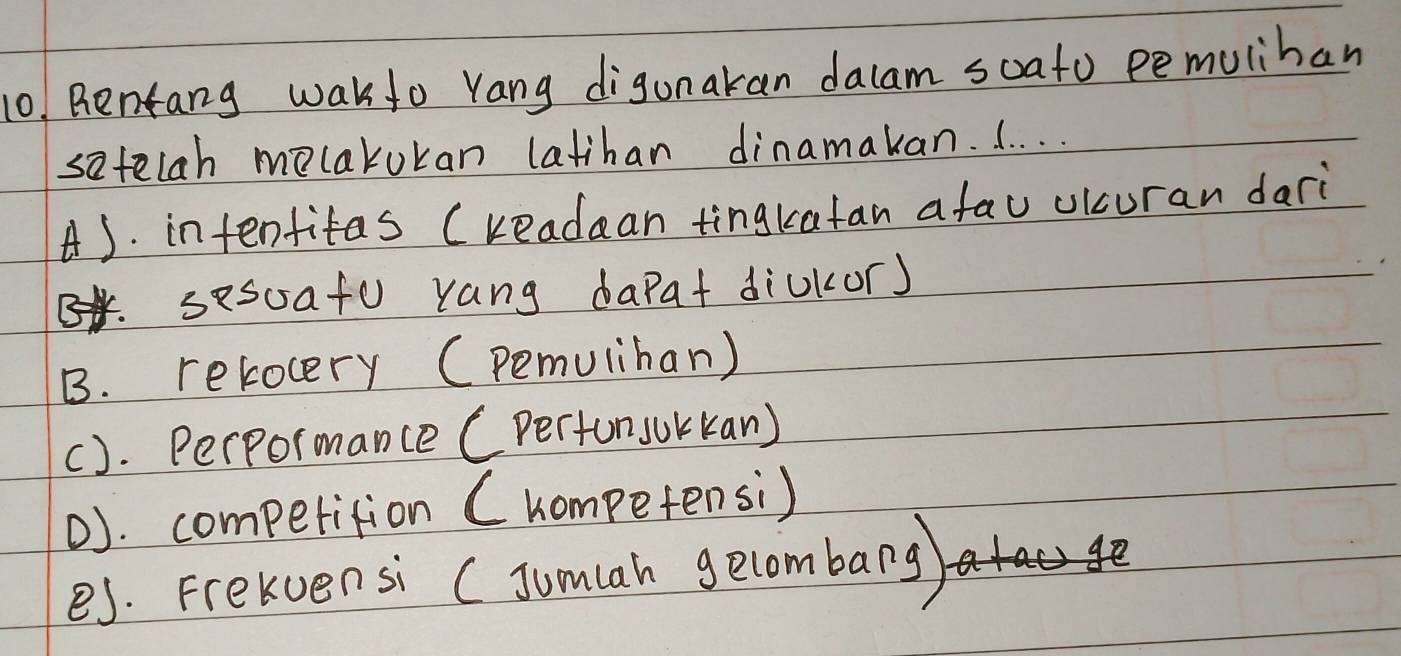 10. Rentang wakto Yang digunakan dalam suato pemulihan
setelah melakukan latihan dinamakan. ....
A). intentitas (keadaan tingkatan atau ukuran dari
sesuatu yang dapat diukur)
B. rekocery (pemulihan)
C). Perpormance (Pertunjukkan)
D). competition (kompetensi)
e). Frekuensi (Jumlah gelombang) atau ge